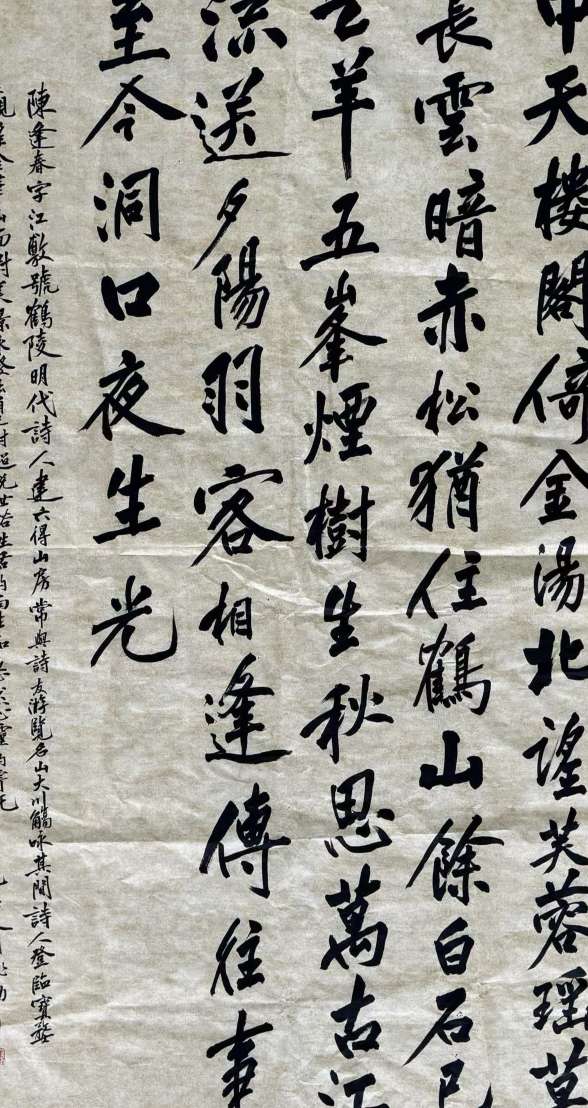 中天樓閣倚金湯北望芙蓉瑤草
長雲暗赤松猶住鶴山餘白石已
羊五峯煙樹生秋思萬古江
流送夕陽羽客相逢傳往事
至今洞口夜生光
陳逢春字江敷號鶴陵明代詩人建六得山房常與詩友游覽名山大川觴咏其間詩人登臨寶婺